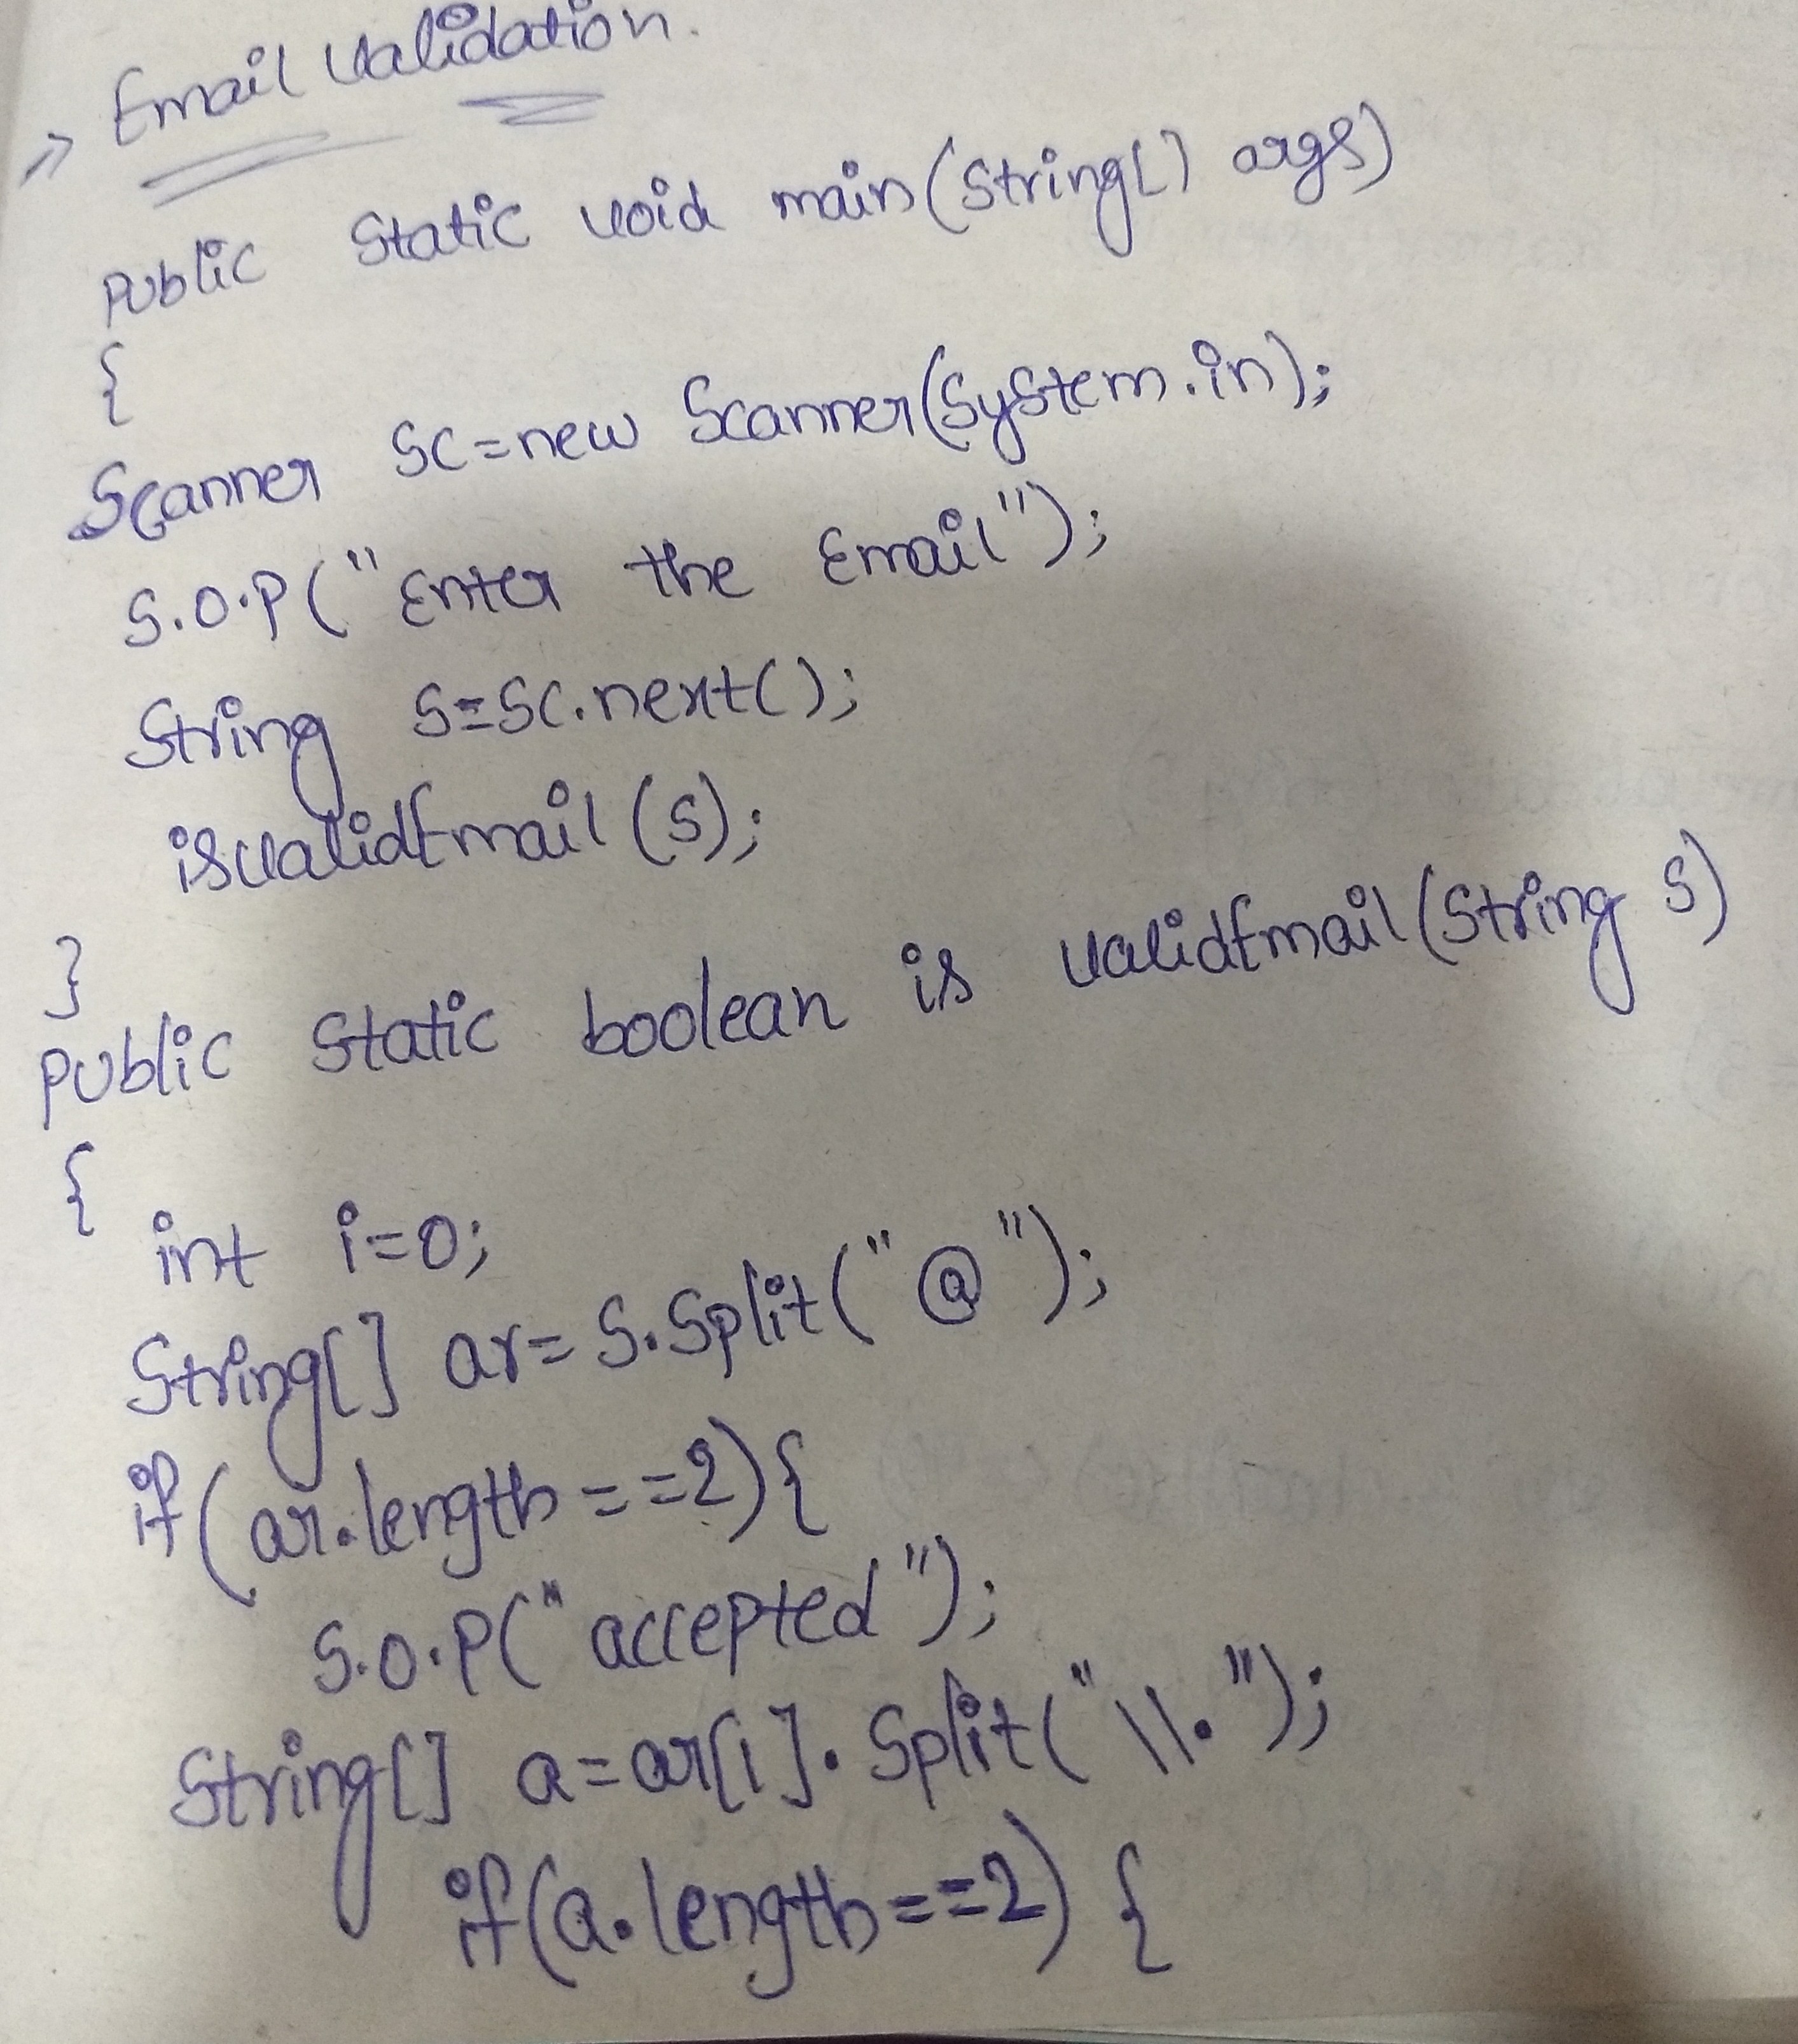 => Email Validation.
public static void main(String[] args)
{
Scanner sc=new Scanner(System.in);
S.O.P("Enter the Email");
String s=sc.next();
isvalidEmail(s);
}
public static boolean is validEmail(String s)
{
int i=0;
String[] ar=s.split("@");
if(ar.length==2){
S.O.P("accepted");
String[] a=ar[1].split("\\.");
if(a.length==2) {